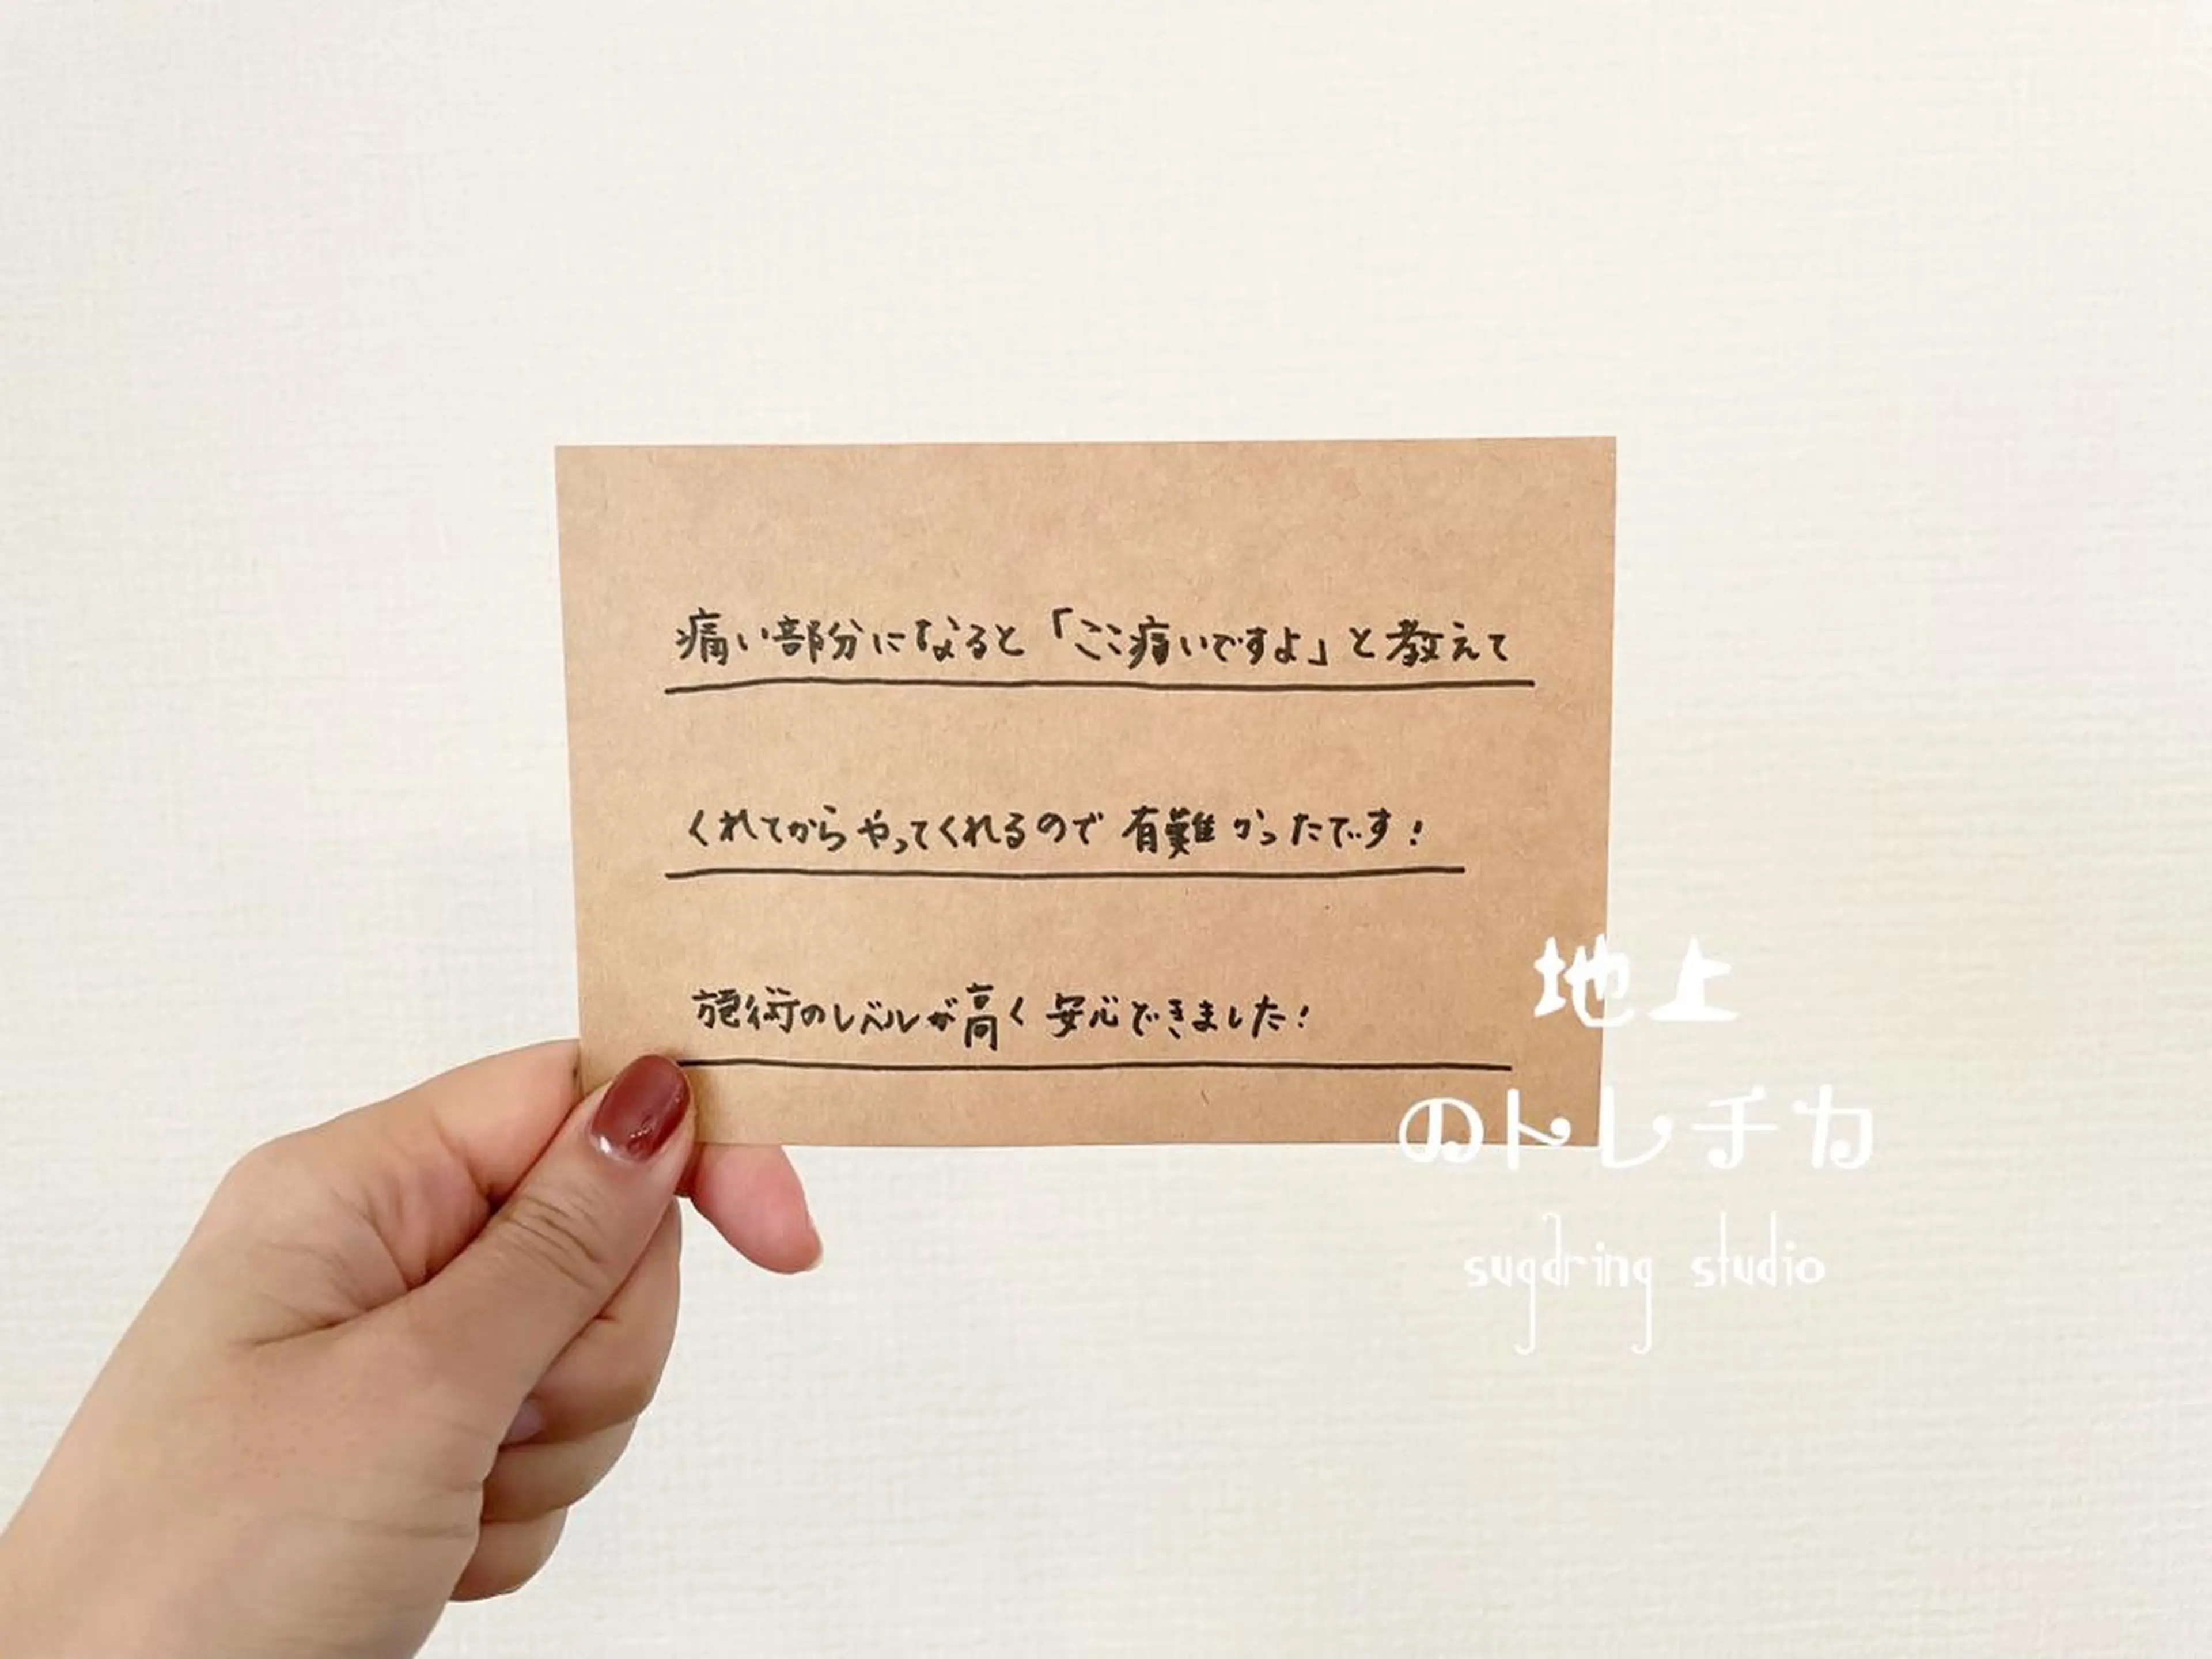 痛い部分になると「ここ痛いですよ」と教えて
くれてからやってくれるので 有難かったです!
施術のレベルが高く 安心できました!
地上
のトレチカ
sugaring studio